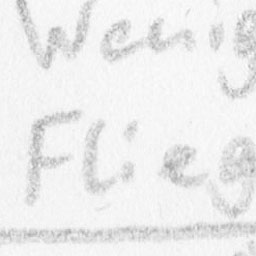 Wenig
Flieg